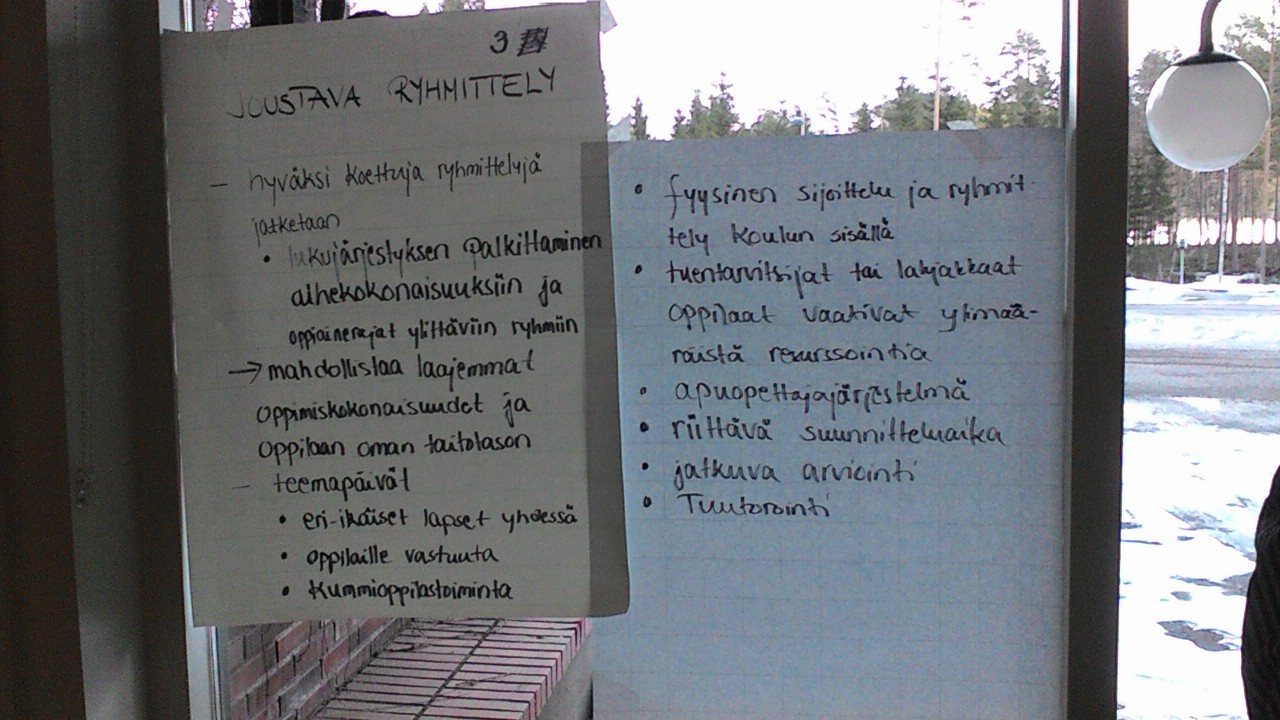 3
JOUSTAVA RYHMITTELY
– hyväksi koettuja ryhmittelyjä
jatketaan
• lukujärjestyksen palkittaminen
aihekokonaisuuksiin ja
oppiainerajat ylittäviin ryhmiin
→ mahdollistaa laajemmat
oppimiskokonaisuudet ja
oppilaan oman taitotason
– teemapäivät
• eri-ikäiset lapset yhdessä
• oppilaille vastuuta
• kummioppilastoiminta
• fyysinen sijoittelu ja ryhmit-
tely koulun sisällä
• tuentarvitsijat tai lahjakkaat
oppilaat vaativat ylimää-
räistä resurssointia
• apuopettajajärjestelmä
• riittävä suunnitteluaika
• jatkuva arviointi
• Tuutorointi